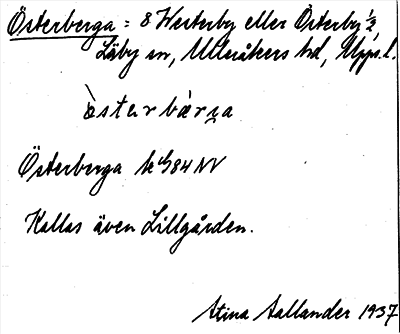 Österberga = 8 Westerby eller Österby 1/2,
Läby sn, Ulleråkers hd, Upps. l.
österbärja
Österberga 84 NV
Kallas även Lillgården.
Stina Aallander 1937